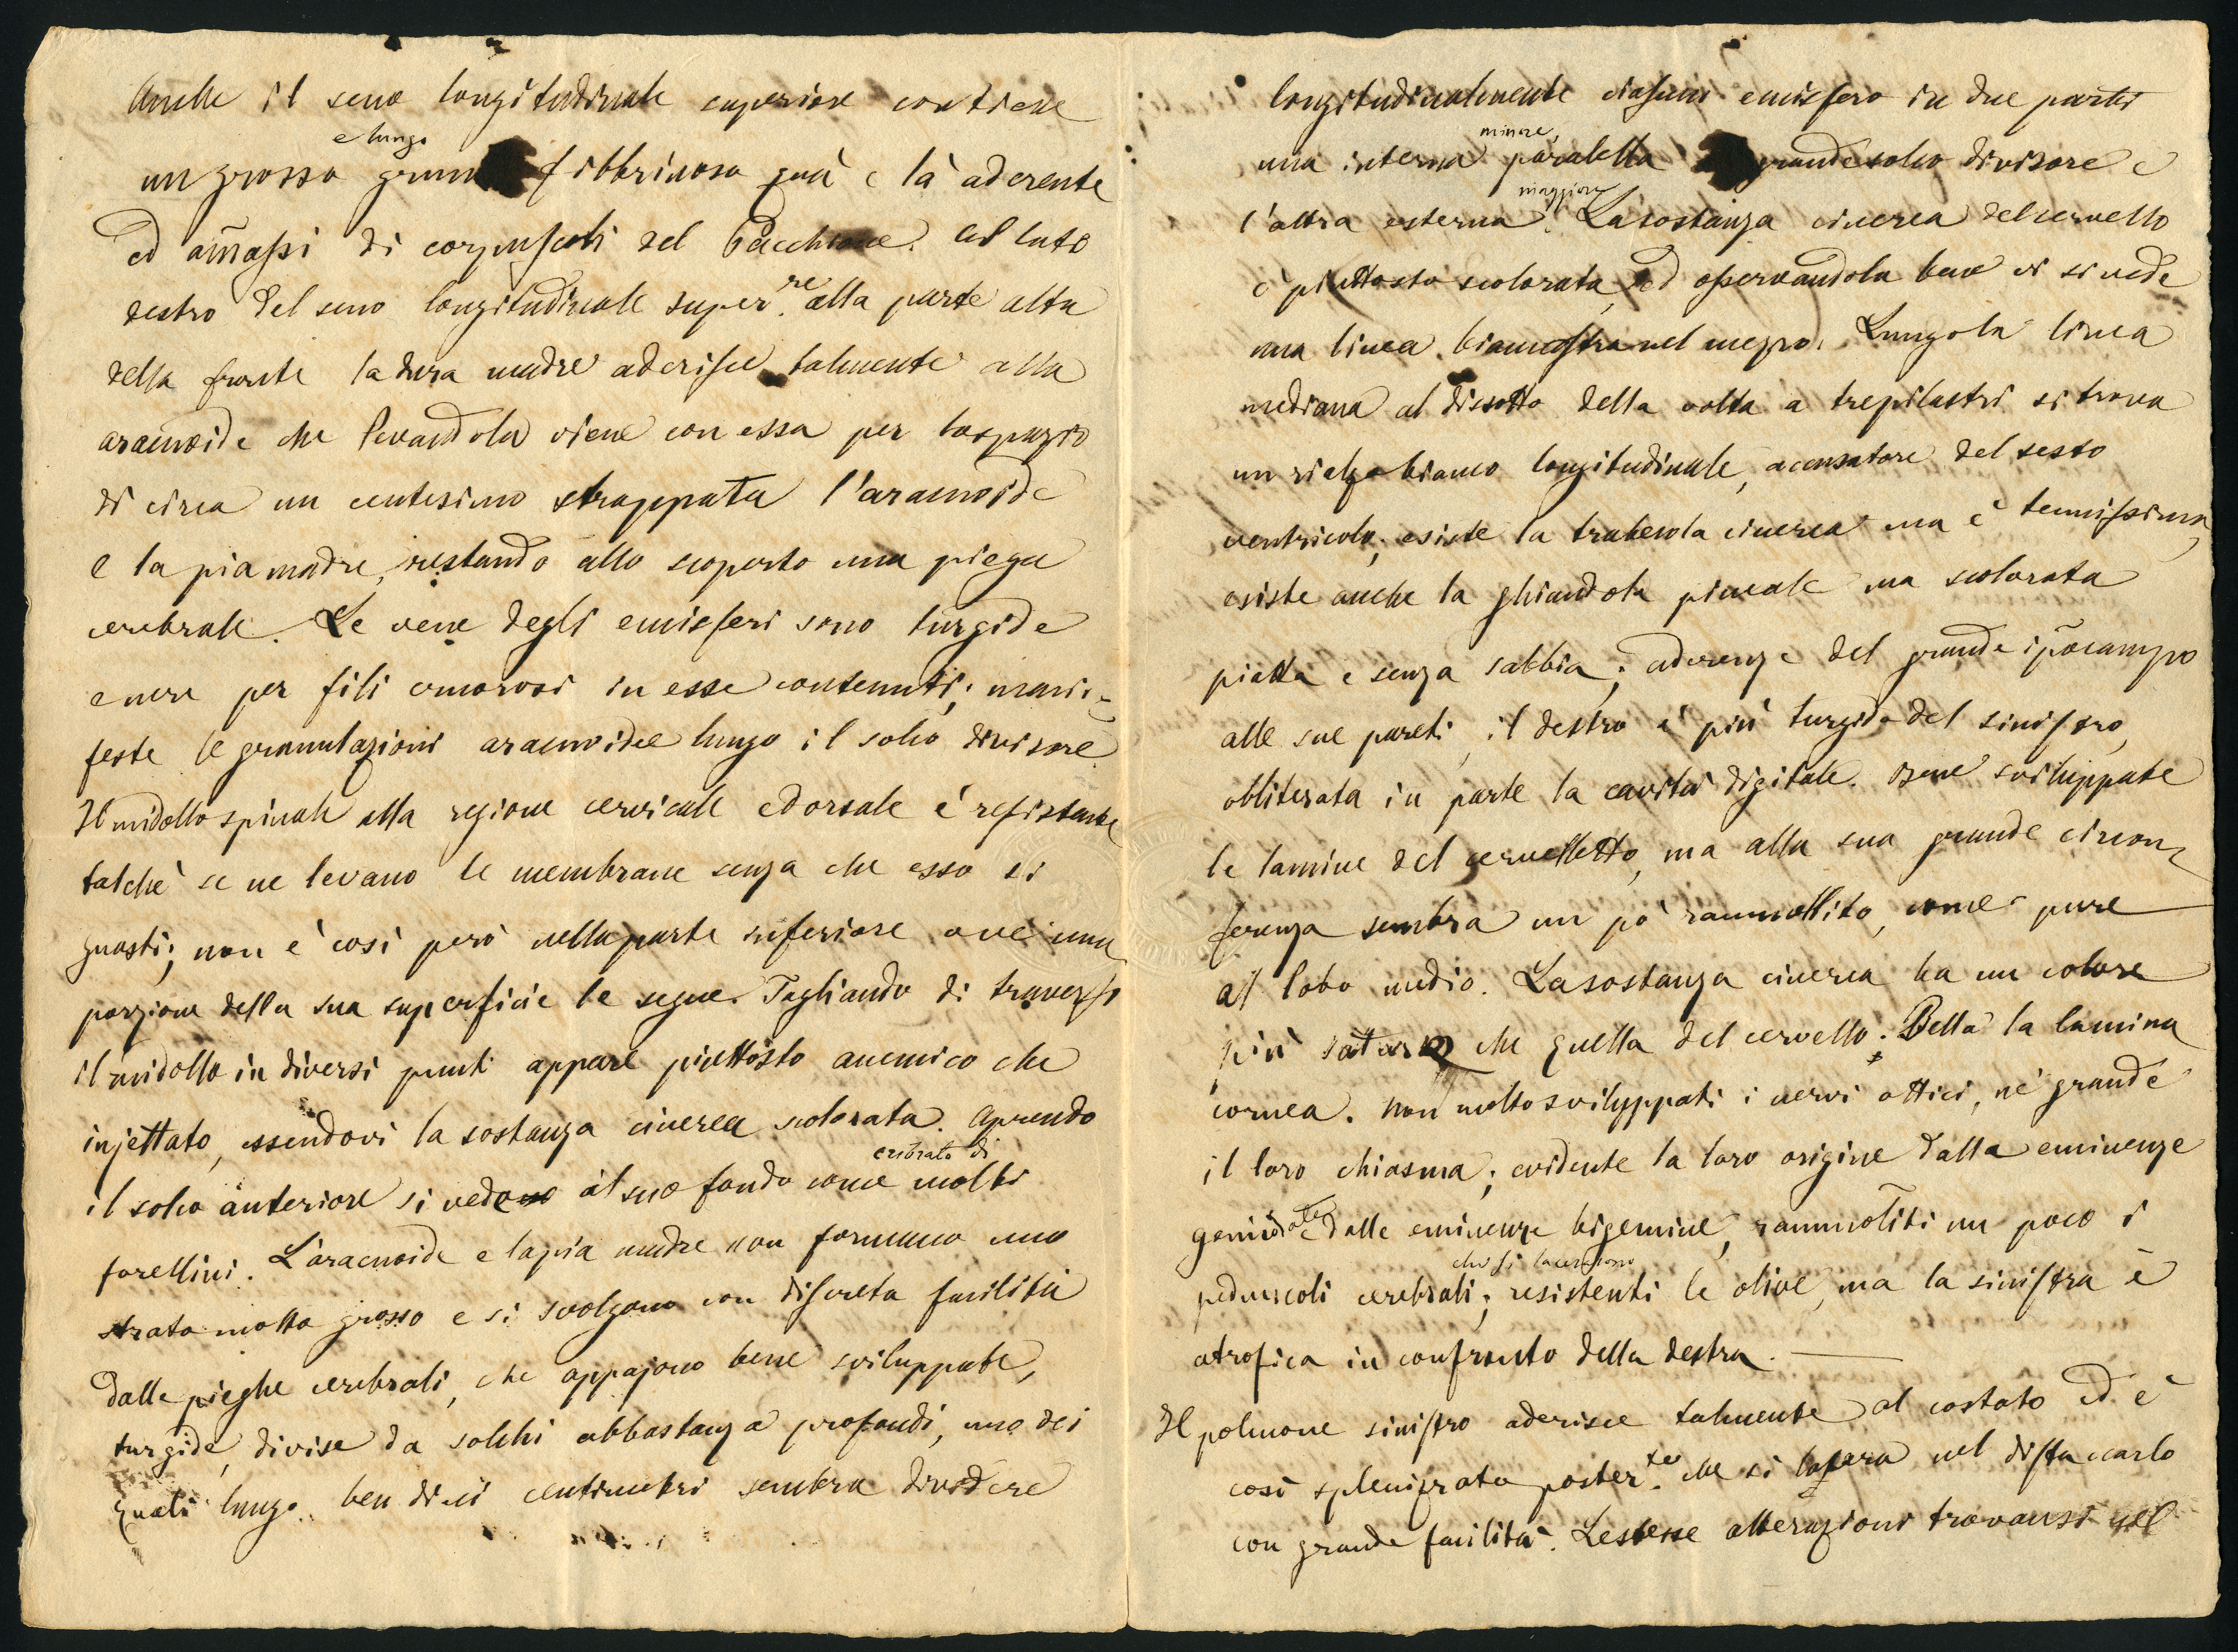 Anche il seno longitudinale superiore contiene
e lungo
un grosso grumo fibbrinoso quà e là aderente
ed am̄assi di corpuscoli del Pacchione. Al lato
destro del seno longitudinale super.re alla parte alta
della fronte la dura madre aderisce talmente alla
aracnoide che levandola viene con essa per lo spazio
di circa un centesimo strappata l'aracnoide
e la pia madre, restando allo scoperto una piega
cerebrale. Le vene degli emisferi sono turgide
e nere per fili cruorosi in esse contenuti; mani=
feste le granulazioni aracnoidee lungo il solco divisore
Il midollo spinale alla regione cervicale e dorsale é resistente
talchè se ne levano le membrane senza che esso si
guasti; non è così però nella parte inferiore ove una
porzione della sua superficie le segue. Tagliando di traverso
il midollo in diversi punti appare piuttosto anemico che
injettato, essendovi la sostanza cinerea scolorata. Aprendo
cribrato di
il solco anteriore si vede al suo fondo come molti
forellini. L'aracnoide e la pia madre non formano uno
strato molto grosso e si svolgono con discreta facilità
dalle pieghe cerebrali, che appajono bene sviluppate,
turgide, divise da solchi abbastanza profondi, uno dei
quali lungo ben dieci centimetri sembra dividere
longitudinalmente ciascun emisfero in due parti
minore,
una interna paralella grande solco divisore e
maggiore
l'altra esterna. La sostanza cinerea del cervello
è piuttosto scolorata, ed osservandola bene vi si vede
una linea biancastra nel mezzo. Lungo la linea
mediana al dissotto della volta a trepilastri si trova
un rialzo bianco longitudinale, accusatore del sesto
ventricolo; esiste la trabecola cinerea ma è tenuissima,
esiste anche la ghiandola pineale ma scolorata
piatta e senza sabbia; aderenze del grande ip̄ocampo
alle sue pareti, il destro è più turgido del sinistro,
obliterata in parte la cavità digitale. Bene sviluppate
le lamine del cervelletto, ma alla sua grande circon=
ferenza sembra un pò rammollito, come pure
al lobo medio. La sostanza cinerea ha un colore
più saturo che quella del cervello. Bella la lamina
cornea. Non molto sviluppati i nervi ottici, nè grande
il loro chiasma; evidente la loro origine dalla eminenze
genicolate e dalle eminenze bigemine, rammoliti un poco i
che si lacerano
peduncoli cerebrali; resistenti le olive, ma la sinistra è
atrofica in confronto della destra.
Il polmone sinistro aderisce talmente al costato ed è
così splenizzato poster.te che si lacera nel distaccarlo
con grande facilità. Le stesse alterazioni trovansi nel